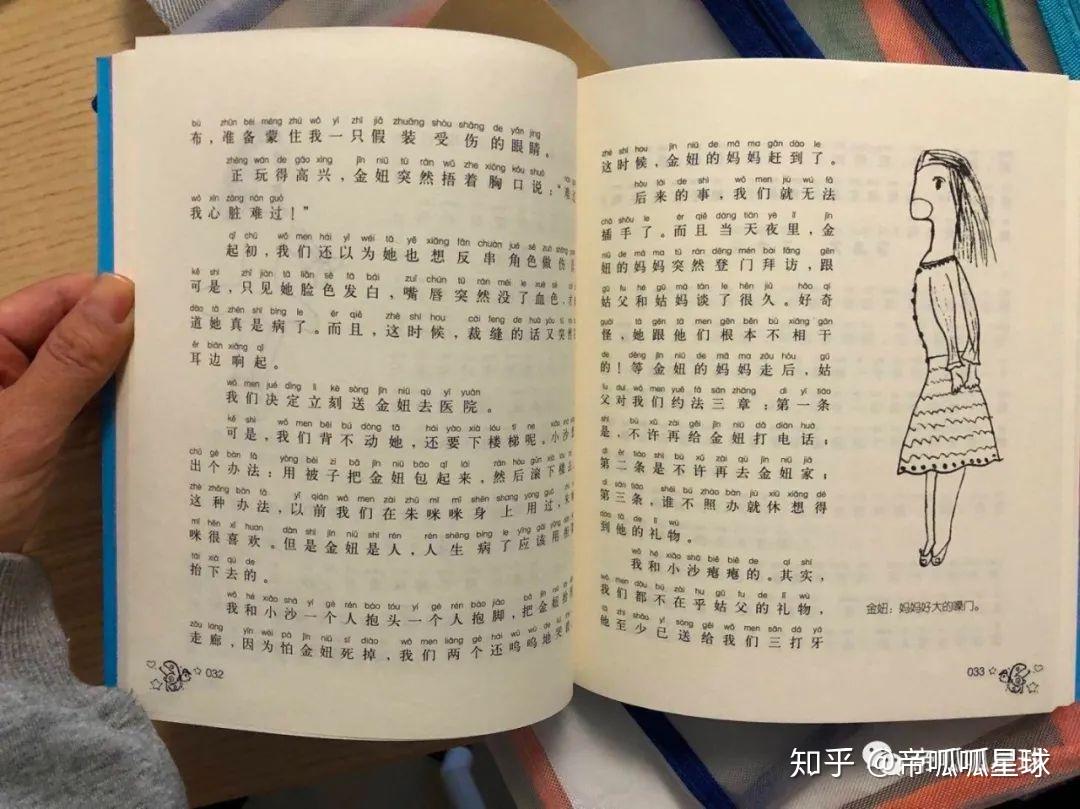 bù zhǔn bèi méng zhù wǒ yì zhī jiǎ zhuāng shòu shāng de yǎn jing
布，准备蒙住我一只假装受伤的眼睛。
zhèng wán de gāo xìng jīn niǔ tū rán wǔ zhe xiōng kǒu shuō
正玩得高兴，金妞突然捂着胸口说：“难过
wǒ xīn zàng nán guò
我心脏难过！”
qǐ chū wǒ men hái yǐ wéi tā yě xiǎng fǎn chuàn jué sè zuò shāng
起初，我们还以为她也想反串角色做伤
kě shì zhǐ jiàn tā liǎn sè fā bái zuǐ chún tū rán méi le xuè sè
可是，只见她脸色发白，嘴唇突然没了血色，
dào tā zhēn shì bìng le ér qiě zhè shí hou cái feng de huà yòu tū
道她真是病了。而且，这时候，裁缝的话又突然
ěr biān xiǎng qǐ
耳边响起。
wǒ men jué dìng lì kè sòng jīn niǔ qù yī yuàn
我们决定立刻送金妞去医院。
kě shì wǒ men bēi bú dòng tā hái yào xià lóu tī ne
可是，我们背不动她，还要下楼梯呢。小沙
chū gè bàn fǎ yòng bèi zi bǎ jīn niǔ bāo qǐ lái rán hòu gǔn xià lóu
出个办法：用被子把金妞包起来，然后滚下楼
zhè zhǒng bàn fǎ yǐ qián wǒ men zài zhū mī mī shēn shang yòng guò
这种办法，以前我们在朱咪咪身上用过，朱
mī hěn xǐ huan dàn shì jīn niǔ shì rén rén shēng bìng le yīng gāi yòng
咪很喜欢。但是金妞是人，人生病了应该用
tái xià qù de
抬下去的。
wǒ hé xiǎo shā yí gè rén bào tóu yí gè rén bào jiǎo bǎ jīn niǔ
我和小沙一个人抱头一个人抱脚，把金妞抬
zǒu láng yīn wèi pà jīn niǔ sǐ diào wǒ men liǎng gè hái wū wū de kū
走廊，因为怕金妞死掉，我们两个还呜呜地哭
032
zhè shí hou jīn niǔ de mā ma gǎn dào le
这时候，金妞的妈妈赶到了。
hòu lái de shì wǒ men jiù wú fǎ
后来的事，我们就无法
chā shǒu le ér qiě dàng tiān yè li jīn
插手了。而且当天夜里，金
niǔ de mā ma tū rán dēng mén bài fǎng gēn
妞的妈妈突然登门拜访，跟
gū fu hé gū mā tán le hěn jiǔ hào qí
姑父和姑妈谈了很久。好奇
guài tā gēn tā men gēn běn bù xiāng gān
怪，她跟他们根本不相干
de děng jīn niǔ de mā ma zǒu hòu gū
的！等金妞的妈妈走后，姑
fu duì wǒ men yuē fǎ sān zhāng dì yī tiáo
父对我们约法三章：第一条
shì bù xǔ zài gěi jīn niǔ dǎ diàn huà
是，不许再给金妞打电话；
dì èr tiáo shì bù xǔ zài qù jīn niǔ jiā
第二条是不许再去金妞家；
dì sān tiáo shéi bú zhào bàn jiù xiū xiǎng dé
第三条，谁不照办就休想得
dào tā de lǐ wù
到他的礼物。
wǒ hé xiǎo shā biě biě de qí shí
我和小沙瘪瘪的。其实，
wǒ men dōu bú zài hu gū fu de lǐ wù
我们都不在乎姑父的礼物，
tā zhì shǎo yǐ sòng gěi wǒ men sān dá yá
他至少已送给我们三打牙
金妞：妈妈好大的嗓门。
033
知乎 @帝呱呱星球